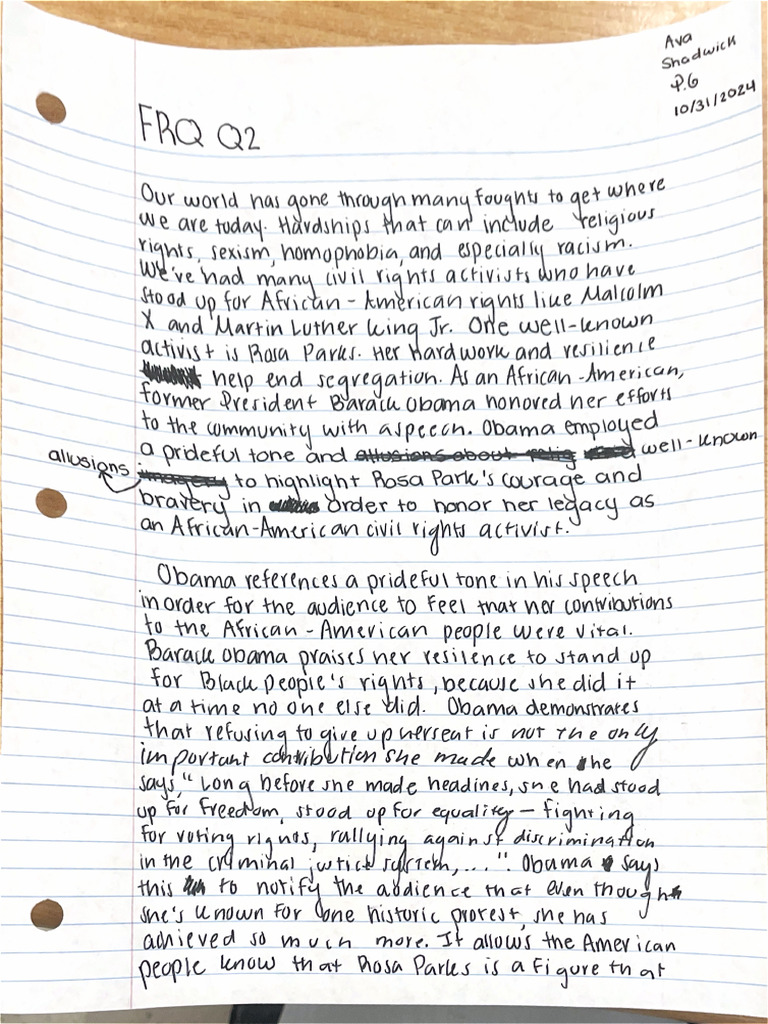 Ava
Shadwick
P.6
10/31/2024
FRQ Q2
Our world has gone through many foughts to get where
we are today. Hardships that can include religious
rights, sexism, homophobia, and especially racism.
We've had many civil rights activists who have
stood up for African-American rights like Malcolm
X and Martin Luther King Jr. One well-known
activist is Rosa Parks. Her hardwork and resilience
help end segregation. As an African-American,
former President Barack Obama honored her efforts
to the community with a speech. Obama employed
a prideful tone and allusions about relig well-known
allusions imagery to highlight Rosa Park's courage and
bravery in order to honor her legacy as
an African-American civil rights activist.
Obama references a prideful tone in his speech
in order for the audience to feel that her contributions
to the African-American people were vital.
Barack Obama praises her resilence to stand up
for Black people's rights, because she did it
at a time no one else did. Obama demonstrates
that refusing to give up her seat is not the only
important contribution she made when he
says, "Long before she made headines, she had stood
up for freedom, stood up for equality — fighting
for voting rights, rallying against discrimination
in the criminal justice system,...". Obama says
this to notify the audience that even though
she's known for one historic protest, she has
achieved so much more. It allows the American
people know that Rosa Parks is a figure that